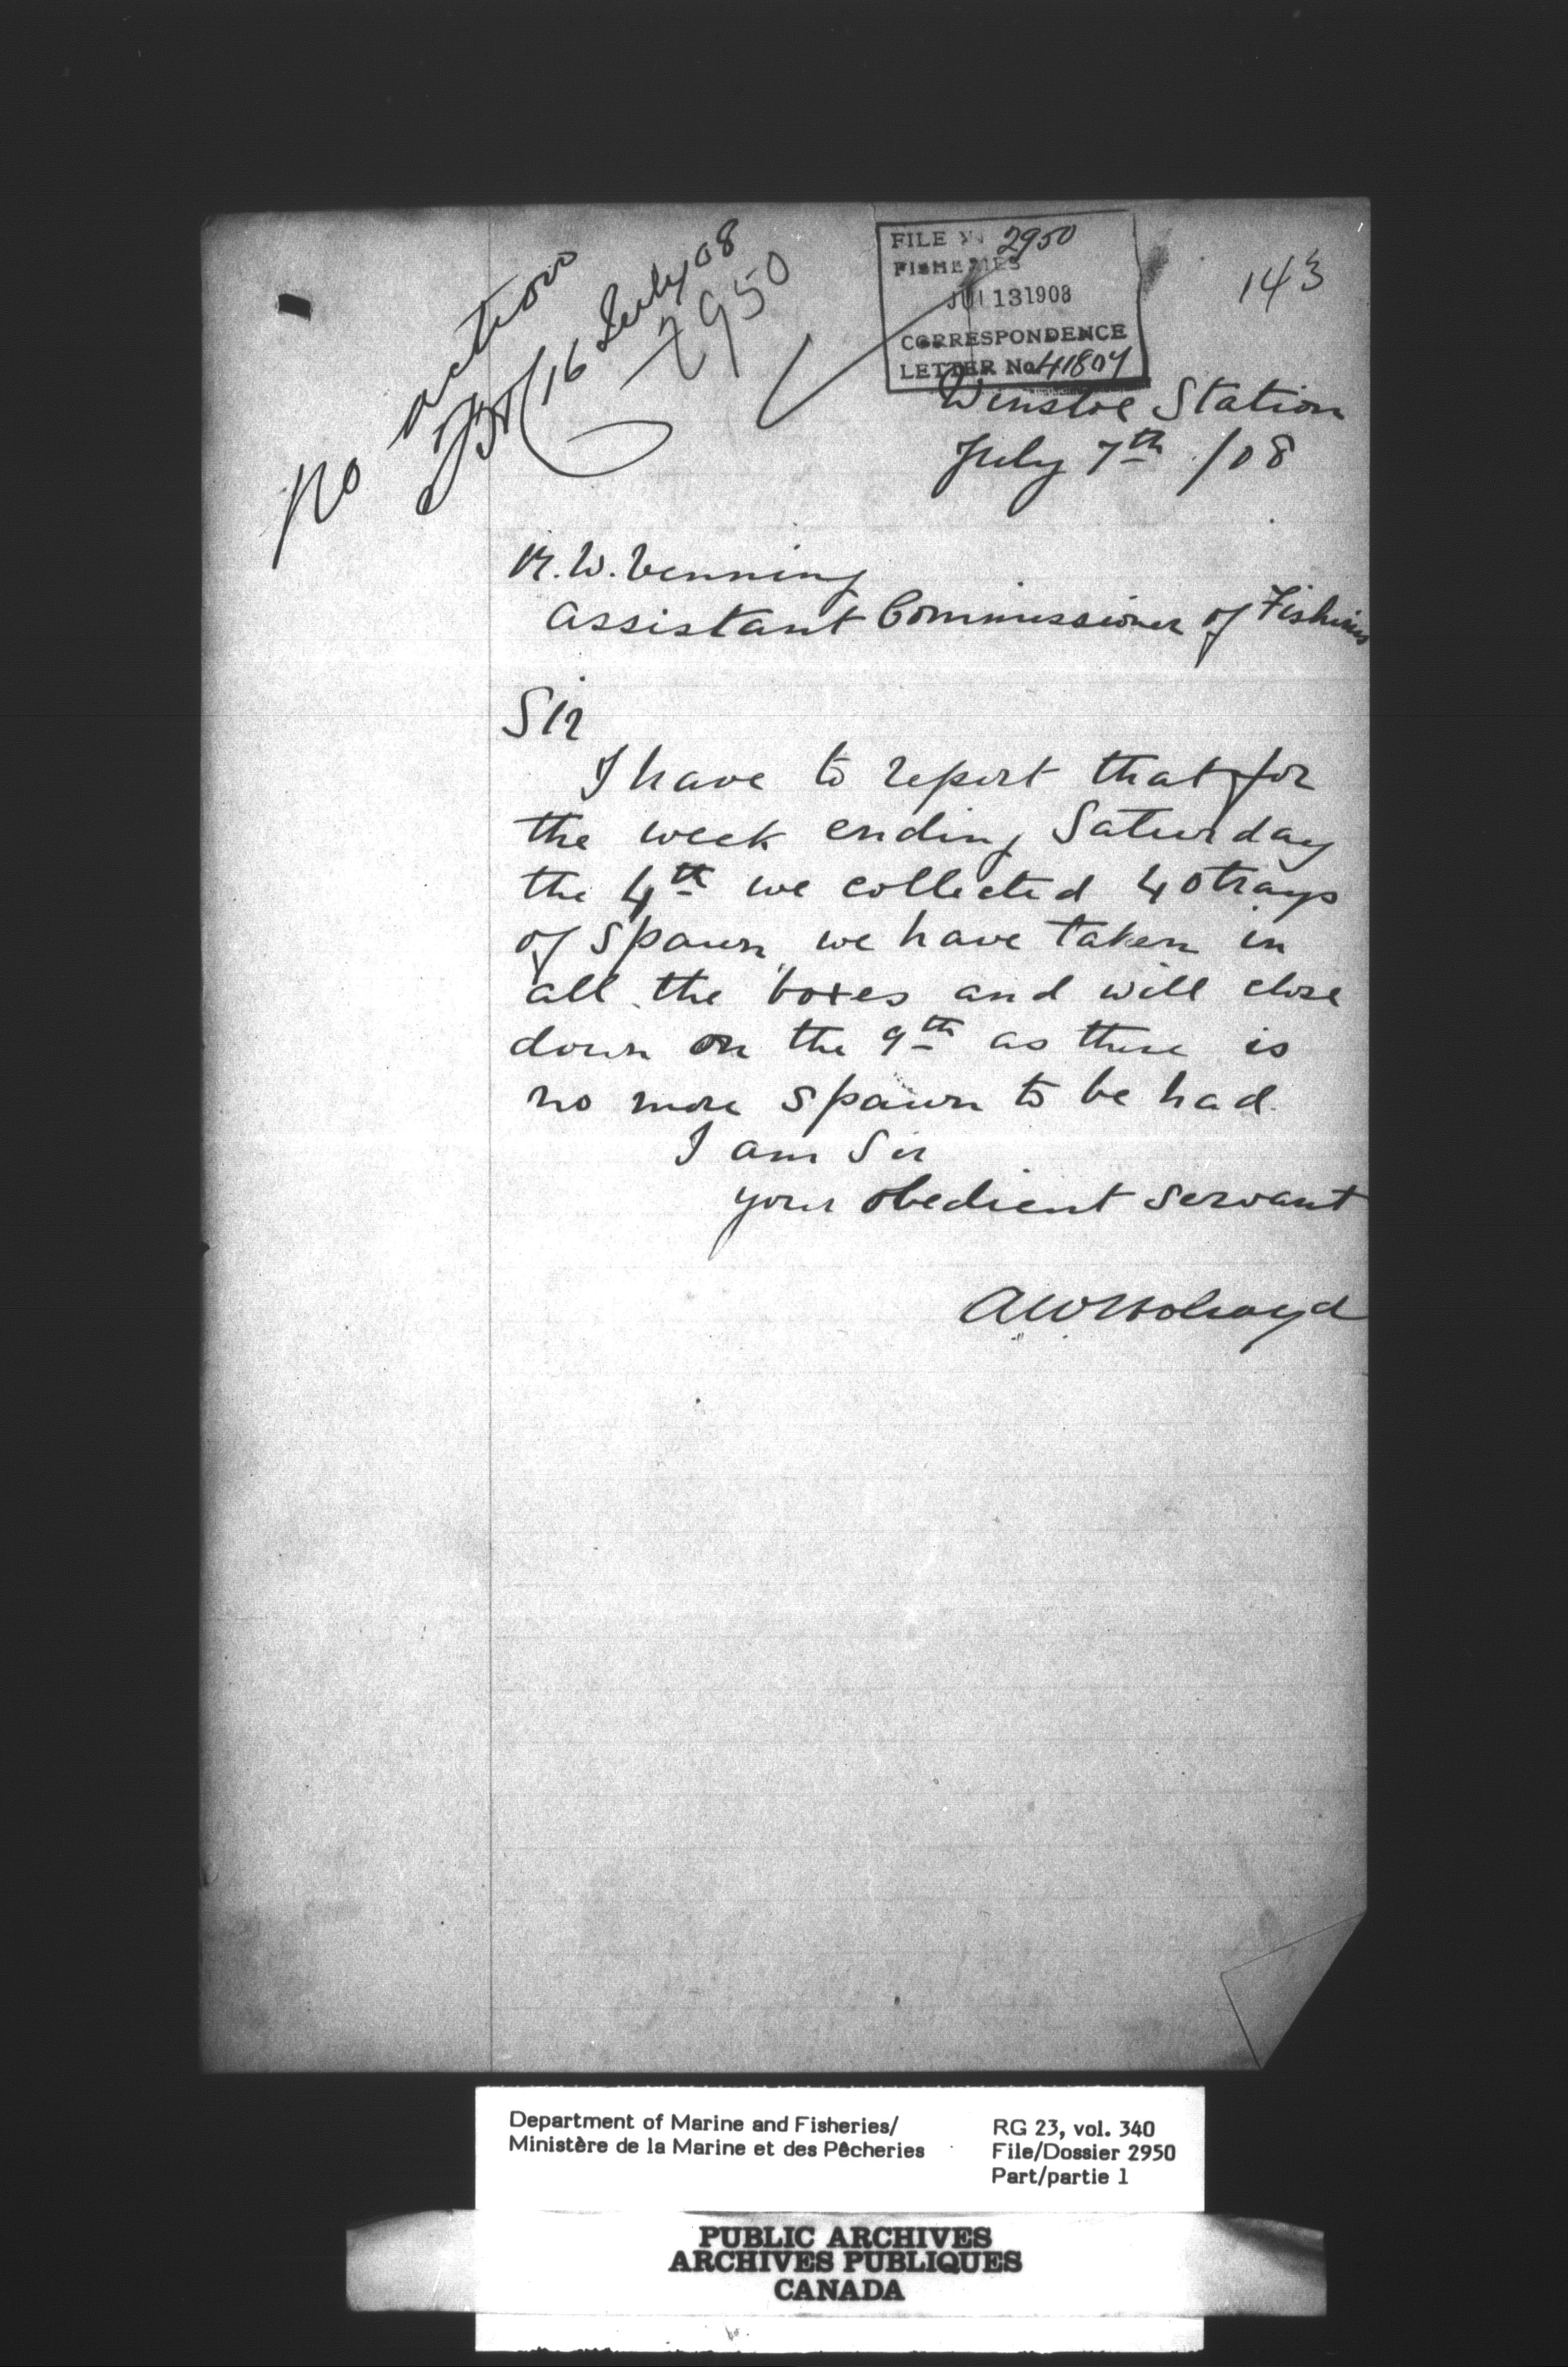 no action
16 July 08
2950
FILE No 2950
FISHERIES
JUL 13 1908
CORRESPONDENCE
LETTER No 41804
143
Winsloe Station
July 7th /08
R. W. Venning
Assistant Commissioner of Fisheries
Sir
I have to report that for
the week ending Saturday
the 4th we collected 40 trays
of spawn, we have taken in
all the boxes and will close
down on the 9th as there is
no more spawn to be had.
I am Sir
your obedient servant
A W Holroyd
Department of Marine and Fisheries/
Ministère de la Marine et des Pêcheries
RG 23, vol. 340
File/Dossier 2950
Part/partie 1
PUBLIC ARCHIVES
ARCHIVES PUBLIQUES
CANADA